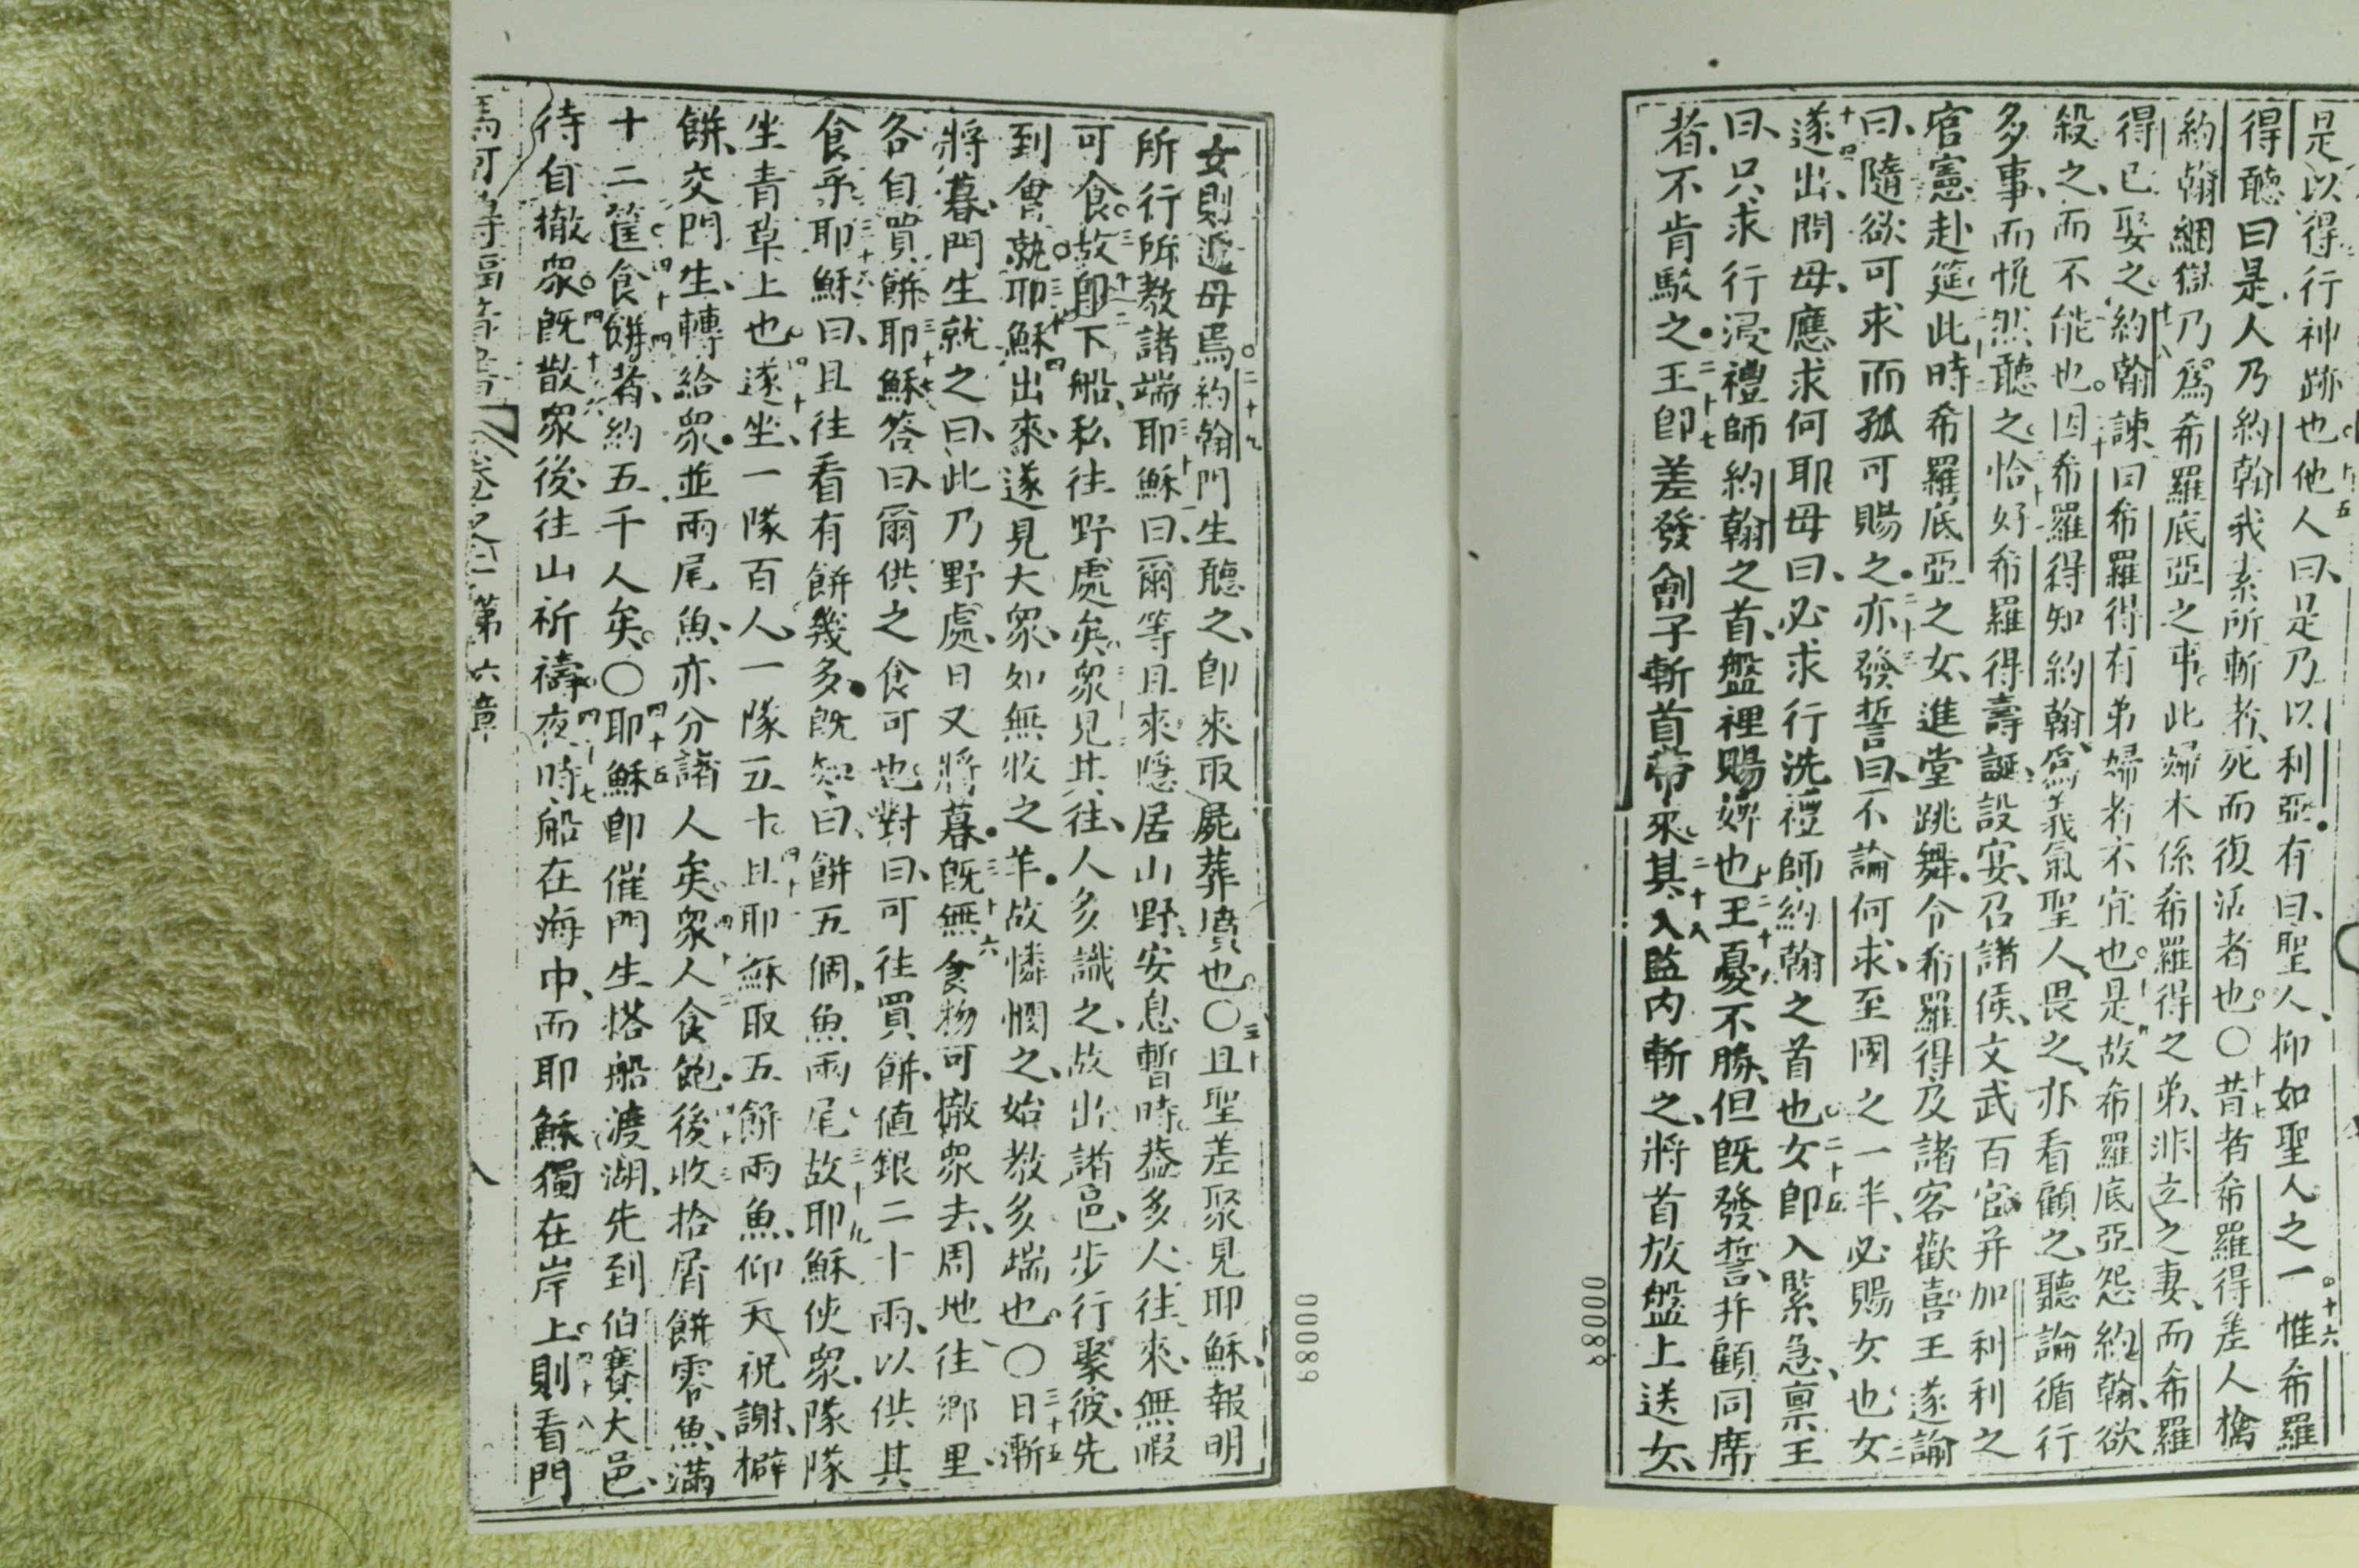 是以得行神跡也他人曰是乃以利亞有曰聖人仰如聖人之一惟希羅
十六
得聽曰是人乃約翰我素所斬者死而復活者也〇昔者希羅得差人擒
十七
約翰綑獄乃爲希羅底亞之事此婦本係希羅得之弟非立之妻而希羅
得已娶之約翰諫曰希羅得有弟婦者不宜也是故希羅底亞怨約翰欲
十八
殺之而不能也因希羅得知約翰爲義氣聖人畏之亦看顧之聽論循行
多事而悅然聽之恰好希羅得壽誕設宴召諸侯文武百官并加利利之
官憲赴筵此時希羅底亞之女進堂跳舞令希羅得及諸客歡喜王遂諭
曰隨欲可求而孤可賜之亦發誓曰不論何求至國之一半必賜女也女
二十三
遂出問母應求何耶母曰必求行洗禮師約翰之首也女即入緊急禀王
二十五
曰只求行浸禮師約翰之首盤裡賜婢也王憂不勝但既發誓并顧同席
二十六
者不肯駁之王即差發劊子斬首帶來其入監內斬之將首放盤上送女
二十七
二十八
00088
女則遞母焉約翰門生聽之即來取屍葬壙也〇且聖差聚見耶穌報明
二十九
三十
所行所教諸端耶穌曰爾等且來隱居山野安息暫時葢多人往來無暇
三十一
可食故即下船私往野處矣衆見其往人多識之故出諸邑步行聚彼先
三十二
到會就耶穌出來遂見大衆如無牧之羊故憐憫之始教多端也〇日漸
三十四
三十五
將暮門生就之曰此乃野處日又將暮既無食物可撤衆去周地往鄉里
三十六
各自買餅耶穌答曰爾供之食可也對曰可往買餅值銀二十兩以供其
三十七
食乎耶穌曰且往看有餅幾多既知白餅五個魚兩尾故耶穌使衆隊隊
三十八
三十九
坐青草上也遂坐一隊百人一隊五十且耶穌取五餅兩魚仰天祝謝擗
四十
四十一
餅交門生轉給衆並兩尾魚亦分諸人矣衆人食飽後收拾屑餅零魚滿
十二筐食餅者約五千人矣〇耶穌即催門生搭船渡湖先到伯賽大邑
四十四
四十五
待自撤衆既散衆後往山祈禱夜時船在海中而耶穌獨在岸上則看門
四十六
四十七
四十八
第六章
八
00089